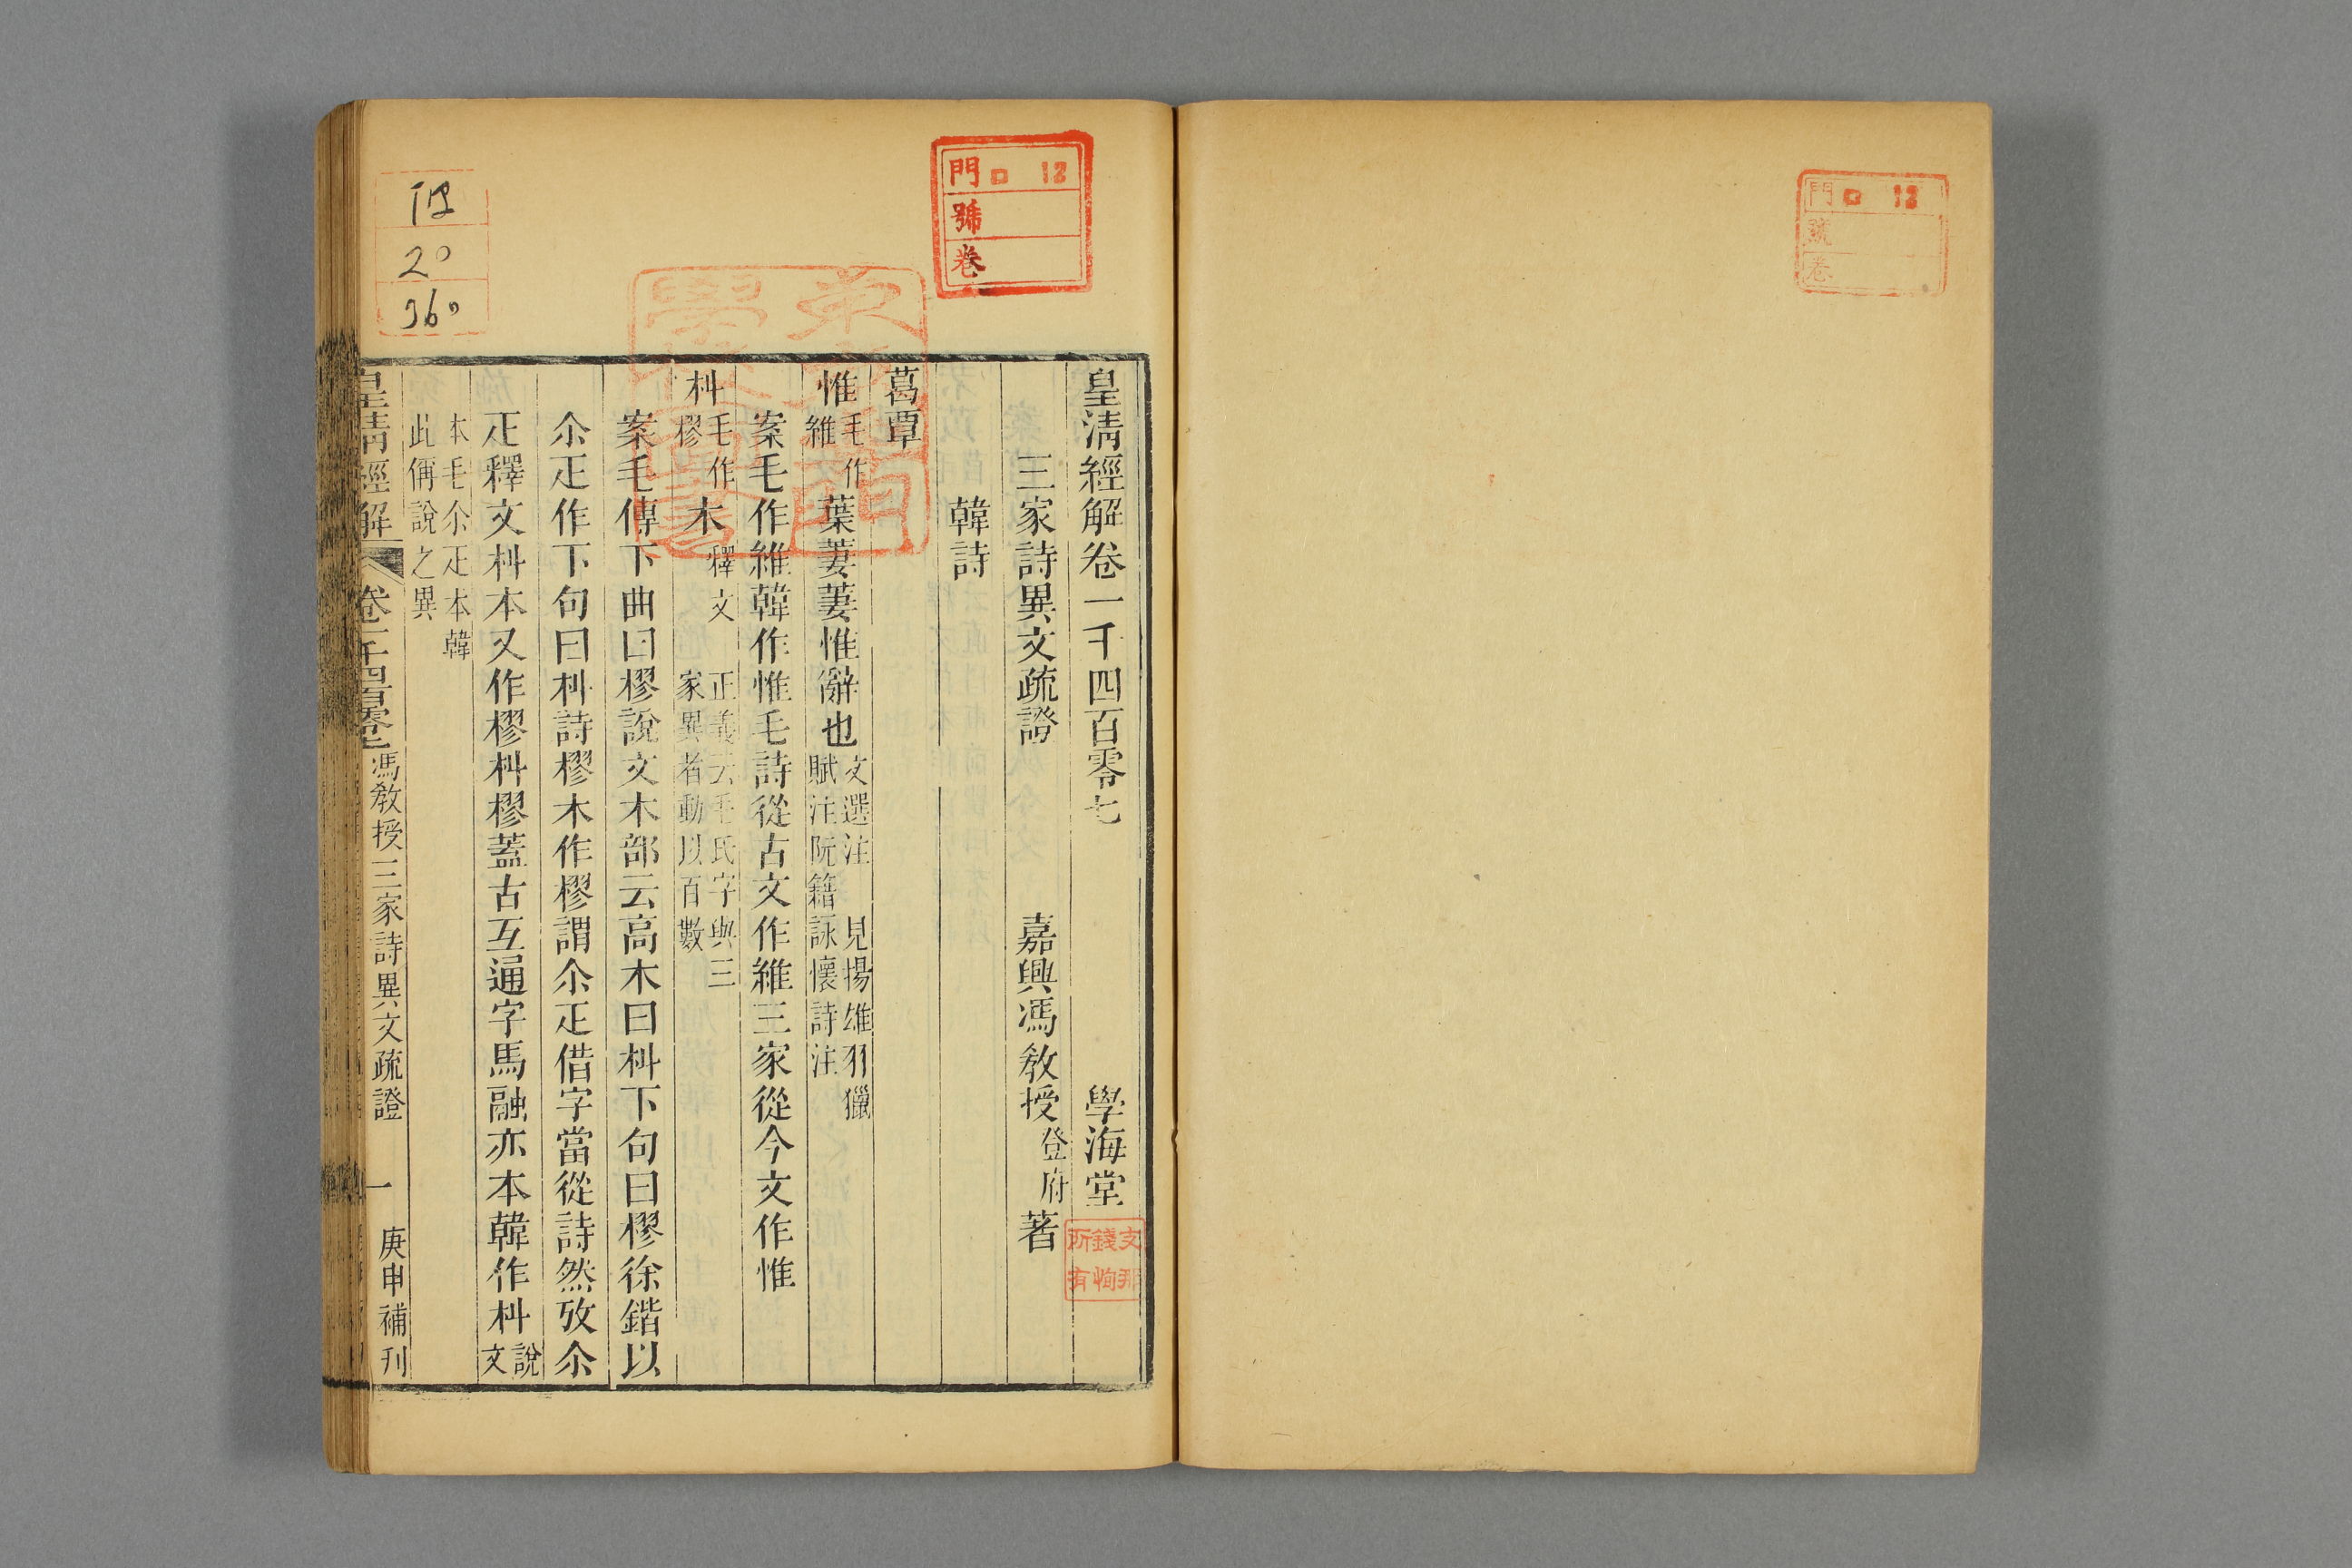 門 口 13
號
卷
門 口 13
號
卷
皇清經解卷一千四百零七 學海堂
三家詩異文疏證 嘉興馮教授登府著
韓詩
葛覃
惟毛作維葉萋萋惟辭也文選注 見揚雄羽獵賦注阮籍詠懷詩注
案毛作維韓作惟毛詩從古文作維三家從今文作惟
朻毛作樛木釋文 正義云毛氏字與三家異者動以百數
案毛傳下曲曰樛說文木部云高木曰朻下句曰樛徐鍇以
尒疋作下句曰朻詩樛木作樛謂尒疋借字當從詩然攷尒
疋釋文朻本又作樛朻樛蓋古互通字馬融亦本韓作朻說文
本毛尒疋本韓此偁說之異
皇清經解 卷一千四百零七 馮教授三家詩異文疏證 一 庚申補刊
支那錢恂所有
20
360